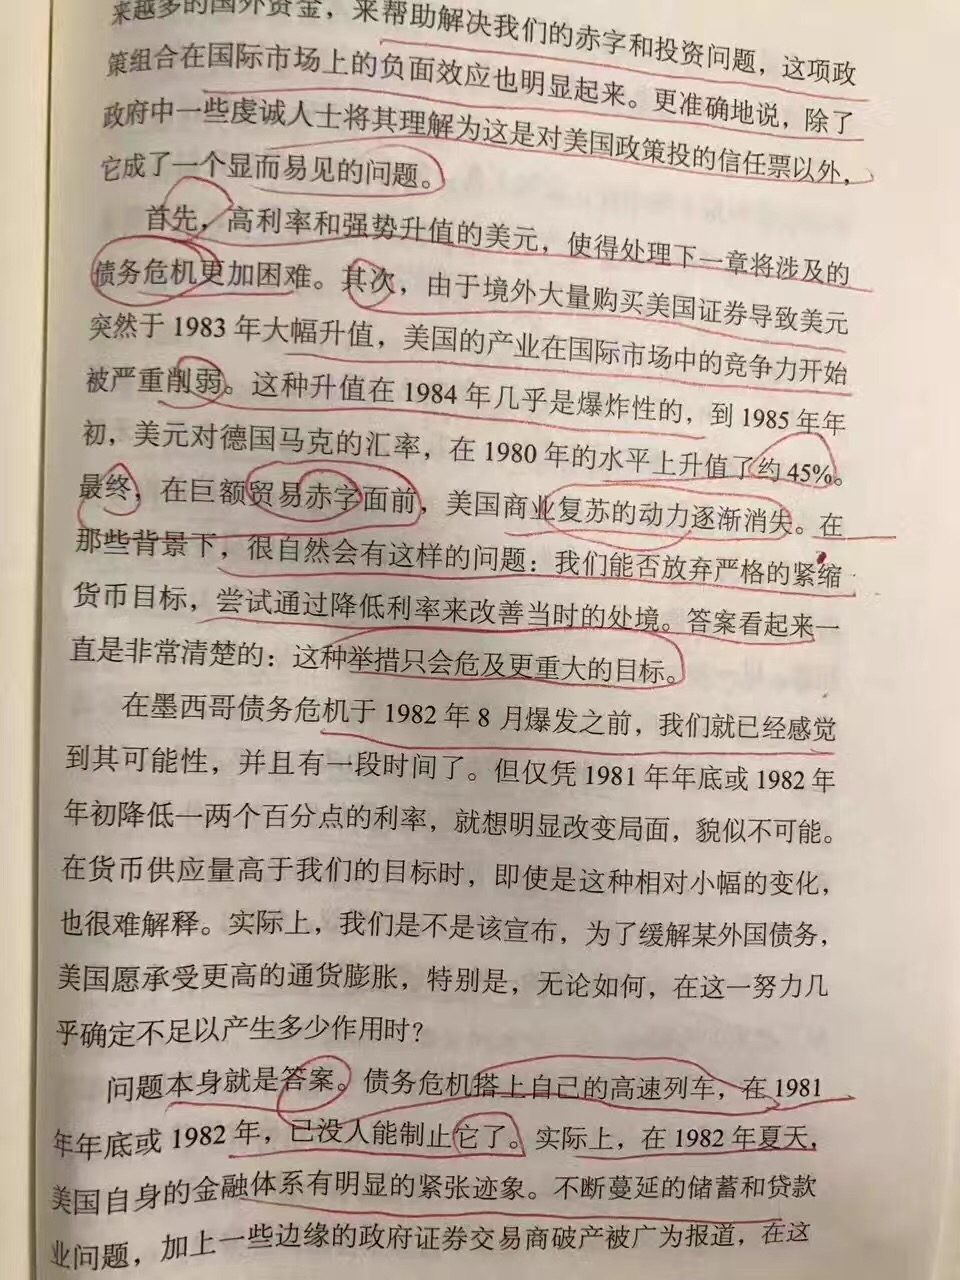 来越多的国外资金，来帮助解决我们的赤字和投资问题，这项政
策组合在国际市场上的负面效应也明显起来。更准确地说，除了
政府中一些虔诚人士将其理解为这是对美国政策投的信任票以外，
它成了一个显而易见的问题。
首先，高利率和强势升值的美元，使得处理下一章将涉及的
债务危机更加困难。其次，由于境外大量购买美国证券导致美元
突然于1983年大幅升值，美国的产业在国际市场中的竞争力开始
被严重削弱。这种升值在1984年几乎是爆炸性的，到1985年年
初，美元对德国马克的汇率，在1980年的水平上升值了约45%。
最终，在巨额贸易赤字面前，美国商业复苏的动力逐渐消失。在
那些背景下，很自然会有这样的问题：我们能否放弃严格的紧缩
货币目标，尝试通过降低利率来改善当时的处境。答案看起来一
直是非常清楚的：这种举措只会危及更重大的目标。
在墨西哥债务危机于1982年8月爆发之前，我们就已经感觉
到其可能性，并且有一段时间了。但仅凭1981年年底或1982年
年初降低一两个百分点的利率，就想明显改变局面，貌似不可能。
在货币供应量高于我们的目标时，即使是这种相对小幅的变化，
也很难解释。实际上，我们是不是该宣布，为了缓解某外国债务，
美国愿承受更高的通货膨胀，特别是，无论如何，在这一努力几
乎确定不足以产生多少作用时？
问题本身就是答案。债务危机搭上自己的高速列车，在1981
年年底或1982年，已没人能制止它了。实际上，在1982年夏天，
美国自身的金融体系有明显的紧张迹象。不断蔓延的储蓄和贷款
业问题，加上一些边缘的政府证券交易商破产被广为报道，在这